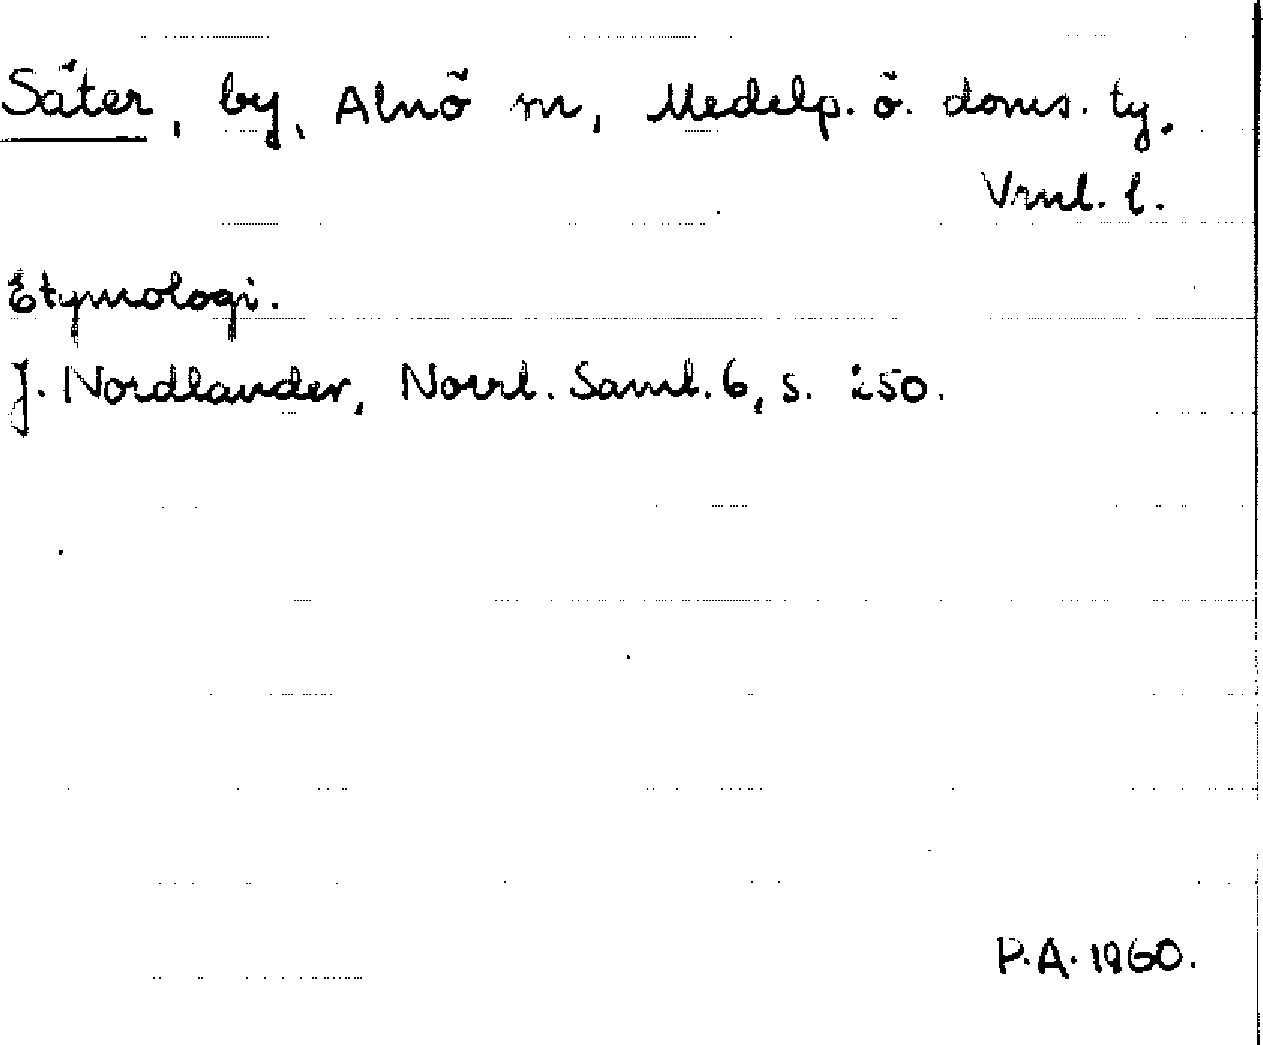 Säter, by, Alnö sn, Medelp. ö. doms. tg.
Vnl. l.
Etymologi.
J. Nordlander, Norrl. Saml. 6, s. 250.
P.A. 1960.